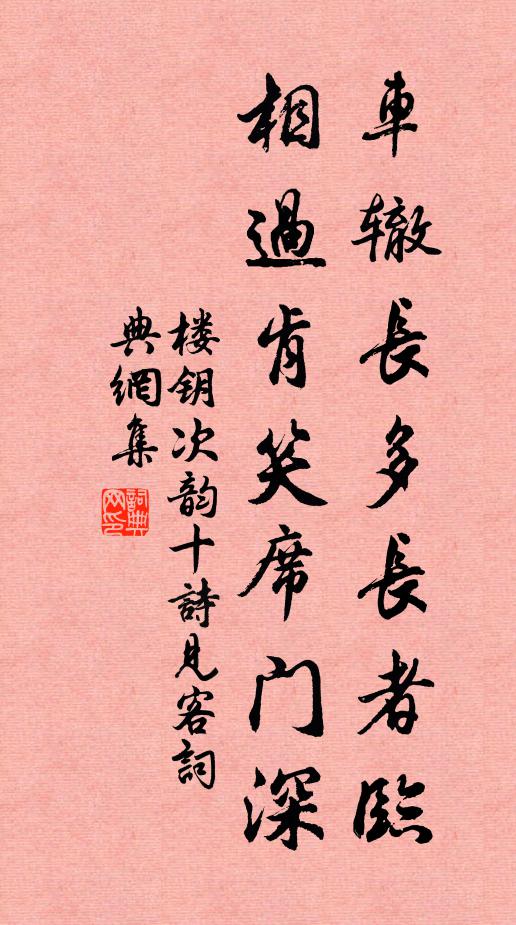 車辙長多長者臨
相過肯笑席门深
楼钥次韵十詩見客詞
典網集
詞典網印